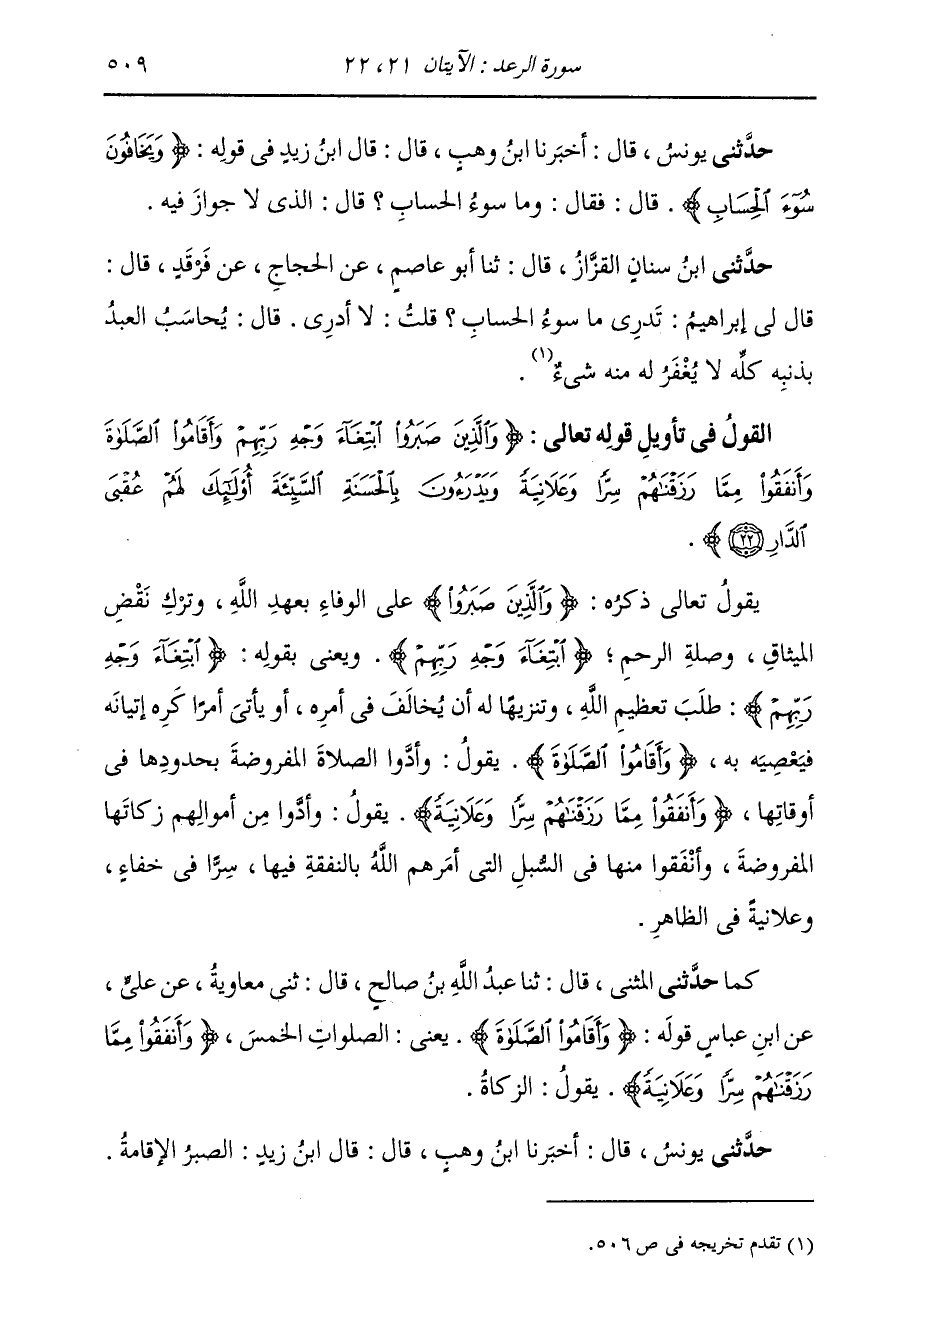 سورة الرعد : الآيتان ٢١، ٢٢ ٥٠٩
حدَّثنى يونسُ ، قال : أخبَرنا ابنُ وهبٍ ، قال : قال ابنُ زيدٍ فى قولِه : ﴿ وَيَخَافُونَ
سُوٓءَ ٱلْحِسَابِ ﴾ . قال : فقال : وما سوءُ الحسابِ ؟ قال : الذى لا جوازَ فيه .
حدَّثنى ابنُ سنانٍ القزَّازُ ، قال : ثنا أبو عاصمٍ ، عن الحجاجِ ، عن فَرْقَدٍ ، قال :
قال لى إبراهيمُ : تَدرِى ما سوءُ الحسابِ ؟ قلتُ : لا أدرِى . قال : يُحاسَبُ العبدُ
بذنبِه كلِّه لا يُغْفَرُ له منه شىءٌ(١) .
القولُ فى تأويلِ قولِه تعالى : ﴿ وَٱلَّذِينَ صَبَرُواْ ٱبْتِغَآءَ وَجْهِ رَبِّهِمْ وَأَقَامُواْ ٱلصَّلَوٰةَ
وَأَنفَقُواْ مِمَّا رَزَقْنَٰهُمْ سِرًّا وَعَلَانِيَةً وَيَدْرَءُونَ بِٱلْحَسَنَةِ ٱلسَّيِّئَةَ أُوْلَٰٓئِكَ لَهُمْ عُقْبَى
ٱلدَّارِ ٢٢ ﴾ .
يقولُ تعالى ذكرُه : ﴿ وَٱلَّذِينَ صَبَرُواْ ﴾ على الوفاءِ بعهدِ اللَّهِ ، وتركِ نَقْضِ
الميثاقِ ، وصلةِ الرحمِ ؛ ﴿ ٱبْتِغَآءَ وَجْهِ رَبِّهِمْ ﴾ . ويعنى بقولِه : ﴿ ٱبْتِغَآءَ وَجْهِ
رَبِّهِمْ ﴾ : طلَبَ تعظيمِ اللَّهِ ، وتنزيهًا له أن يُخالَفَ فى أمرِه ، أو يأتىَ أمرًا كَرِه إتيانَه
فيَعْصِيَه به ، ﴿ وَأَقَامُواْ ٱلصَّلَوٰةَ ﴾ . يقولُ : وأدَّوا الصلاةَ المفروضةَ بحدودِها فى
أوقاتِها ، ﴿ وَأَنفَقُواْ مِمَّا رَزَقْنَٰهُمْ سِرًّا وَعَلَانِيَةً﴾ . يقولُ : وأدَّوا مِن أموالِهم زكاتَها
المفروضةَ ، وأنْفَقوا منها فى السُّبلِ التى أمَرهم اللَّهُ بالنفقةِ فيها ، سِرًّا فى خفاءٍ ،
وعلانيةً فى الظاهرِ .
كما حدَّثنى المثنى ، قال : ثنا عبدُ اللَّهِ بنُ صالحٍ ، قال : ثنى معاويةُ ، عن علىٍّ ،
عن ابنِ عباسٍ قولَه : ﴿ وَأَقَامُواْ ٱلصَّلَوٰةَ ﴾ . يعنى : الصلواتِ الخمسَ ، ﴿ وَأَنفَقُواْ مِمَّا
رَزَقْنَٰهُمْ سِرًّا وَعَلَانِيَةً﴾ . يقولُ : الزكاةُ .
حدَّثنى يونسُ ، قال : أخبَرنا ابنُ وهبٍ ، قال : قال ابنُ زيدٍ : الصبرُ الإقامةُ .
(١) تقدم تخريجه فى ص ٥٠٦.